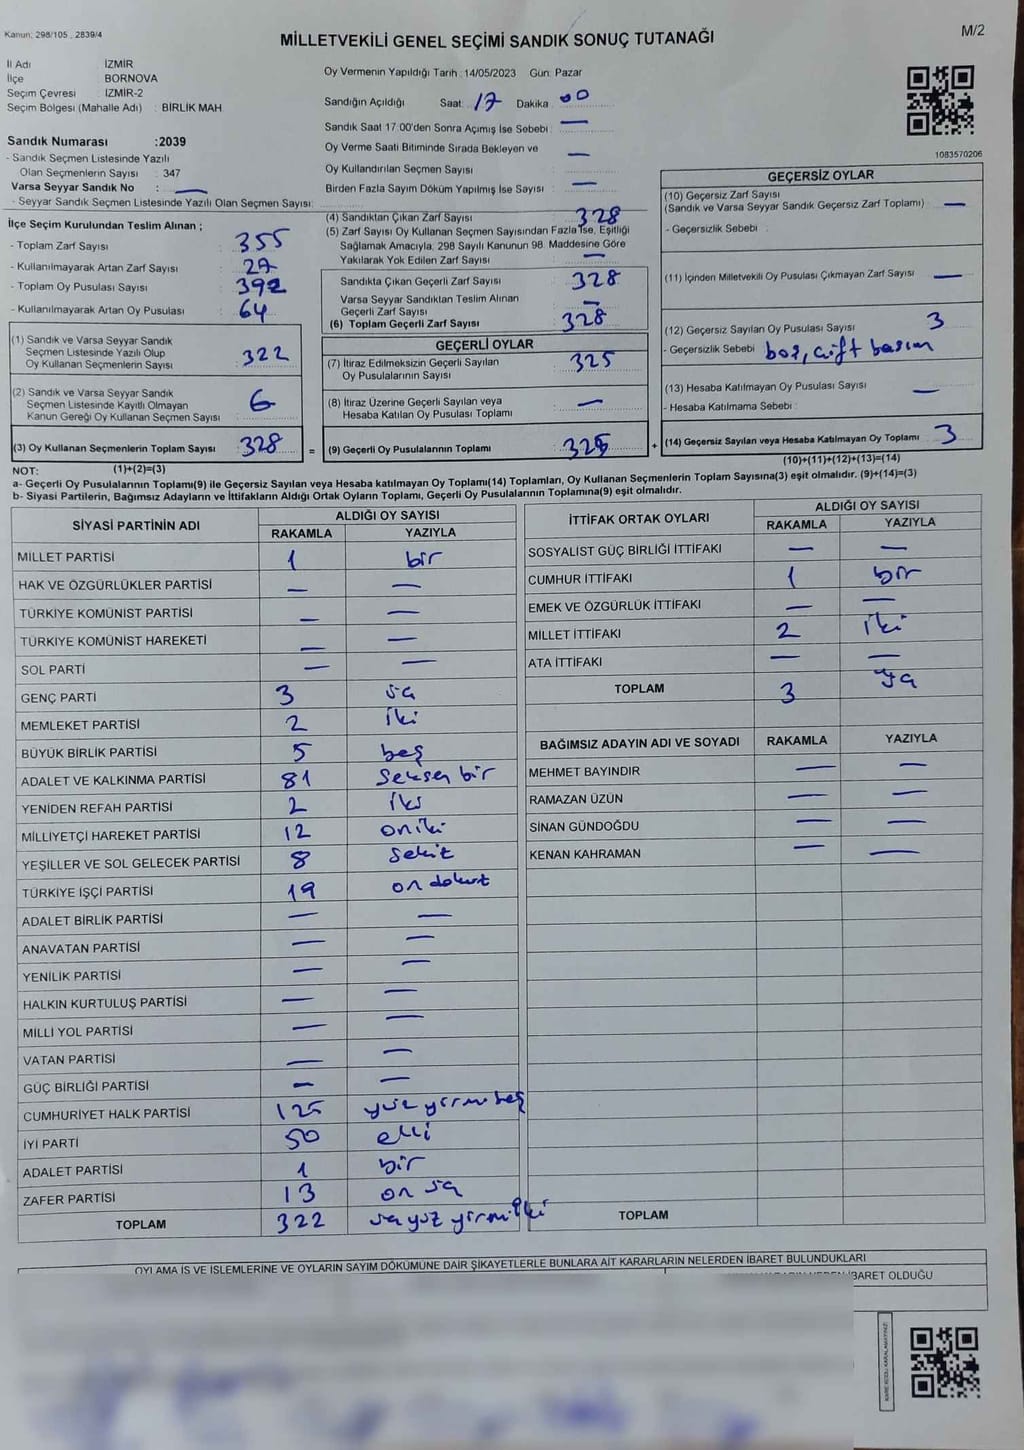 Kanun: 298/105, 2839/4
MİLLETVEKİLİ GENEL SEÇİMİ SANDIK SONUÇ TUTANAĞI
M/2
İl Adı İZMİR
İlçe BORNOVA
Seçim Çevresi : İZMİR-2
Seçim Bölgesi (Mahalle Adı) : BİRLİK MAH
Sandık Numarası :2039
- Sandık Seçmen Listesinde Yazılı
Olan Seçmenlerin Sayısı : 347
Varsa Seyyar Sandık No : —
- Seyyar Sandık Seçmen Listesinde Yazılı Olan Seçmen Sayısı:
Oy Vermenin Yapıldığı Tarih : 14/05/2023 Gün: Pazar
Sandığın Açıldığı Saat: 17 Dakika 00
Sandık Saat 17.00'den Sonra Açımış İse Sebebi : —
Oy Verme Saati Bitiminde Sırada Bekleyen ve
Oy Kullandırılan Seçmen Sayısı —
Birden Fazla Sayım Döküm Yapılmış İse Sayısı : —
1083570206
İlçe Seçim Kurulundan Teslim Alınan ;
- Toplam Zarf Sayısı : 355
- Kullanılmayarak Artan Zarf Sayısı : 27
- Toplam Oy Pusulası Sayısı : 392
- Kullanılmayarak Artan Oy Pusulası : 64
(1) Sandık ve Varsa Seyyar Sandık
Seçmen Listesinde Yazılı Olup
Oy Kullanan Seçmenlerin Sayısı : 322
(2) Sandık ve Varsa Seyyar Sandık
Seçmen Listesinde Kayıtlı Olmayan
Kanun Gereği Oy Kullanan Seçmen Sayısı : 6
(3) Oy Kullanan Seçmenlerin Toplam Sayısı : 328
(1)+(2)=(3)
(4) Sandıktan Çıkan Zarf Sayısı : 328
(5) Zarf Sayısı Oy Kullanan Seçmen Sayısından Fazla İse, Eşitliği
Sağlamak Amacıyla, 298 Sayılı Kanunun 98. Maddesine Göre
Yakılarak Yok Edilen Zarf Sayısı : —
Sandıkta Çıkan Geçerli Zarf Sayısı : 328
Varsa Seyyar Sandıktan Teslim Alınan
Geçerli Zarf Sayısı : —
(6) Toplam Geçerli Zarf Sayısı : 328
GEÇERLİ OYLAR
(7) İtiraz Edilmeksizin Geçerli Sayılan
Oy Pusulalarının Sayısı : 325
(8) İtiraz Üzerine Geçerli Sayılan veya
Hesaba Katılan Oy Pusulası Toplamı : —
= (9) Geçerli Oy Pusulalarının Toplamı : 325
GEÇERSİZ OYLAR
(10) Geçersiz Zarf Sayısı
(Sandık ve Varsa Seyyar Sandık Geçersiz Zarf Toplamı) —
- Geçersizlik Sebebi :
(11) İçinden Milletvekili Oy Pusulası Çıkmayan Zarf Sayısı : —
(12) Geçersiz Sayılan Oy Pusulası Sayısı : 3
- Geçersizlik Sebebi : boş, çift basım
(13) Hesaba Katılmayan Oy Pusulası Sayısı : —
- Hesaba Katılmama Sebebi :
+ (14) Geçersiz Sayılan veya Hesaba Katılmayan Oy Toplamı : 3
(10)+(11)+(12)+(13)=(14)
NOT:
a- Geçerli Oy Pusulalarının Toplamı(9) ile Geçersiz Sayılan veya Hesaba katılmayan Oy Toplamı(14) Toplamları, Oy Kullanan Seçmenlerin Toplam Sayısına(3) eşit olmalıdır. (9)+(14)=(3)
b- Siyasi Partilerin, Bağımsız Adayların ve İttifakların Aldığı Ortak Oyların Toplamı, Geçerli Oy Pusulalarının Toplamına(9) eşit olmalıdır.
SİYASİ PARTİNİN ADI ALDIĞI OY SAYISI
RAKAMLA YAZIYLA
MİLLET PARTİSİ 1 bir
HAK VE ÖZGÜRLÜKLER PARTİSİ — —
TÜRKİYE KOMÜNİST PARTİSİ — —
TÜRKİYE KOMÜNİST HAREKETİ — —
SOL PARTİ — —
GENÇ PARTİ 3 üç
MEMLEKET PARTİSİ 2 iki
BÜYÜK BİRLİK PARTİSİ 5 beş
ADALET VE KALKINMA PARTİSİ 81 seksen bir
YENİDEN REFAH PARTİSİ 2 iki
MİLLİYETÇİ HAREKET PARTİSİ 12 oniki
YEŞİLLER VE SOL GELECEK PARTİSİ 8 sekiz
TÜRKİYE İŞÇİ PARTİSİ 19 on dokuz
ADALET BİRLİK PARTİSİ — —
ANAVATAN PARTİSİ — —
YENİLİK PARTİSİ — —
HALKIN KURTULUŞ PARTİSİ — —
MİLLİ YOL PARTİSİ — —
VATAN PARTİSİ — —
GÜÇ BİRLİĞİ PARTİSİ — —
CUMHURİYET HALK PARTİSİ 125 yüz yirmi beş
İYİ PARTİ 50 elli
ADALET PARTİSİ 1 bir
ZAFER PARTİSİ 13 on üç
TOPLAM 322 üç yüz yirmi iki
İTTİFAK ORTAK OYLARI ALDIĞI OY SAYISI
RAKAMLA YAZIYLA
SOSYALİST GÜÇ BİRLİĞİ İTTİFAKI — —
CUMHUR İTTİFAKI 1 bir
EMEK VE ÖZGÜRLÜK İTTİFAKI — —
MİLLET İTTİFAKI 2 iki
ATA İTTİFAKI — —
TOPLAM 3 üç
BAĞIMSIZ ADAYIN ADI VE SOYADI RAKAMLA YAZIYLA
MEHMET BAYINDIR — —
RAMAZAN ÜZÜN — —
SİNAN GÜNDOĞDU — —
KENAN KAHRAMAN — —
TOPLAM
OYLAMA İŞ VE İŞLEMLERİNE VE OYLARIN SAYIM DÖKÜMÜNE DAİR ŞİKAYETLERLE BUNLARA AİT KARARLARIN NELERDEN İBARET BULUNDUKLARI
İBARET OLDUĞU